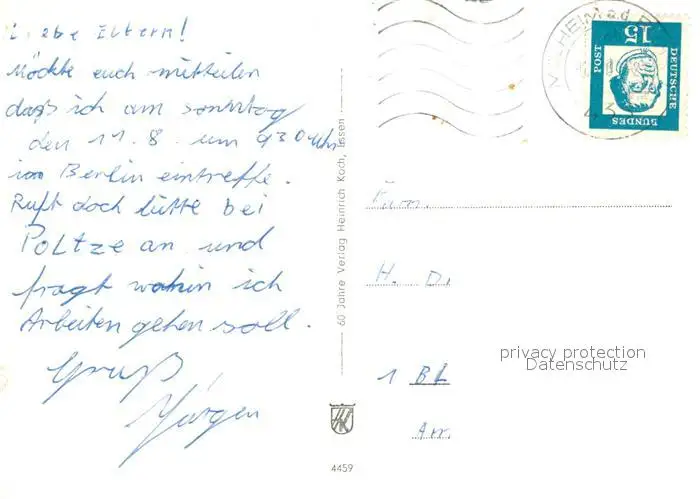 Liebe Eltern!
Möchte euch mitteilen
daß ich am Sonntag
den 11.8. um 930 Uhr
in Berlin eintreffe.
Ruft doch bitte bei
POLtze an und
fragt wohin ich
Arbeiten gehen soll.
Gruß
Jürgen
60 Jahre Verlag Heinrich Koch, Essen
HK
4459
15
POST
DEUTSCHE
BUNDES
HEIM a.d. R
Fam.
H. D.
1 BL
privacy protection
Datenschutz